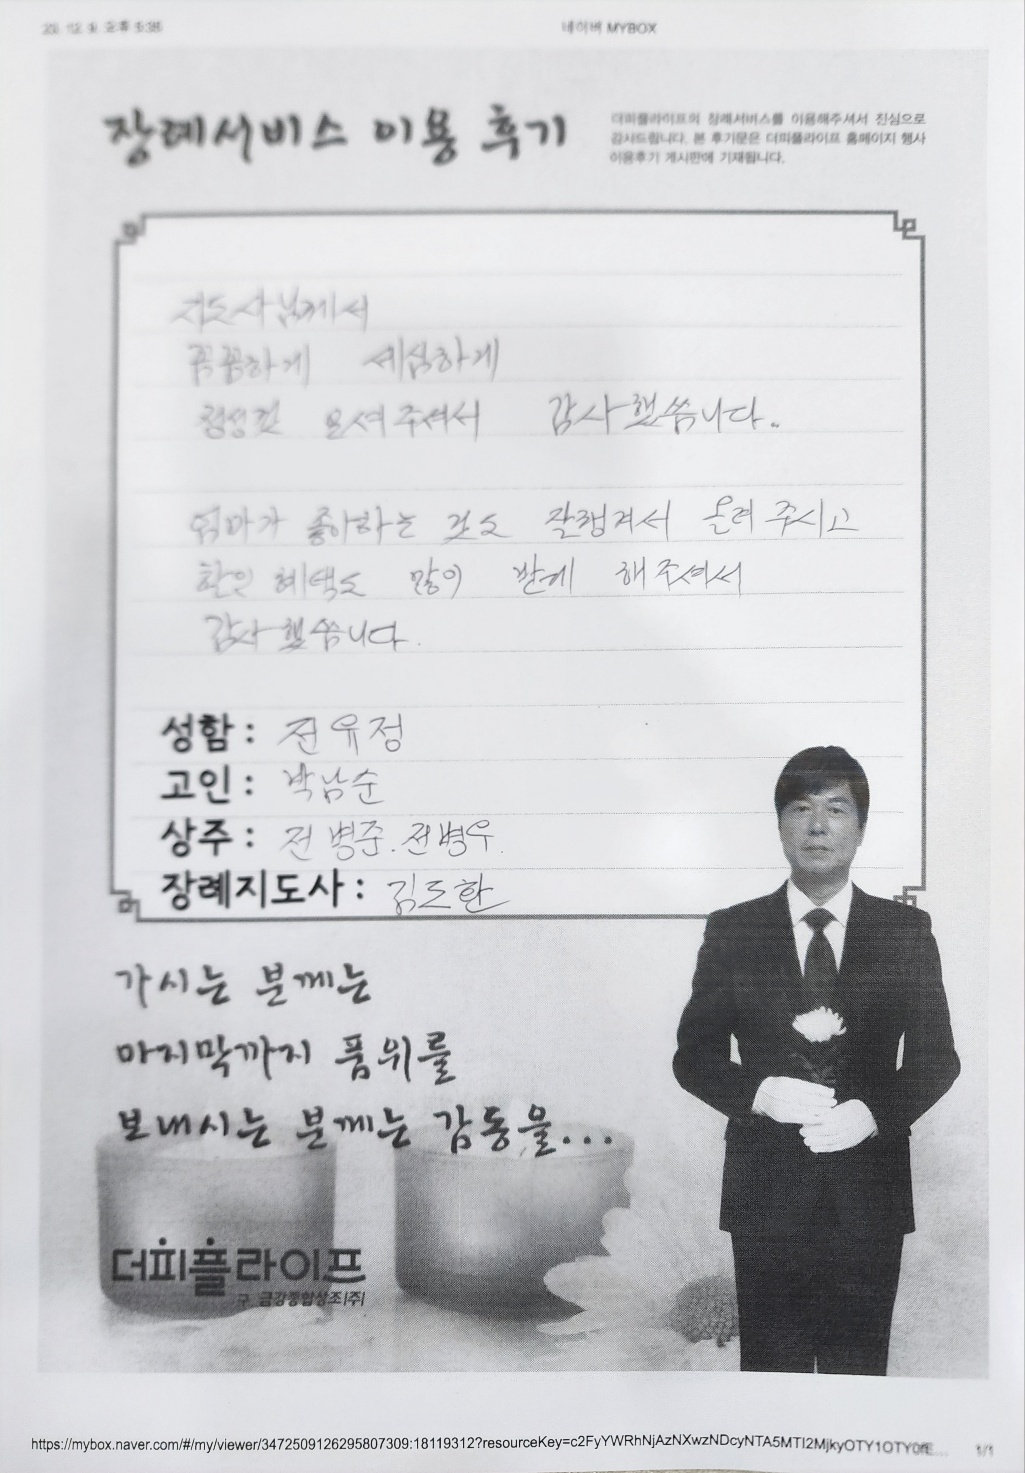 네이버 MYBOX
장례서비스 이용 후기
더피플라이프의 장례서비스를 이용해주셔서 진심으로
감사드립니다. 본 후기문은 더피플라이프 홈페이지 행사
이용후기 게시판에 기재됩니다.
지도사님께서
꼼꼼하게 세심하게
정성껏 모셔주셔서 감사했씀니다..
엄마가 좋아하는 것도 잘챙겨서 올려 주시고
할인 혜택도 많이 받게 해주셔서
감사했씀니다.
성함 : 전유정
고인 : 박남순
상주 : 전병준. 전병우.
장례지도사 : 김도환
가시는 분께는
마지막까지 품위를
보내시는 분께는 감동을...
더피플라이프
구 금강종합상조(주)
https://mybox.naver.com/#/my/viewer/3472509126295807309:18119312?resourceKey=c2FyYWRhNjAzNXwzNDcyNTA5MTI2MjkyOTY1OTY0fE...
1/1